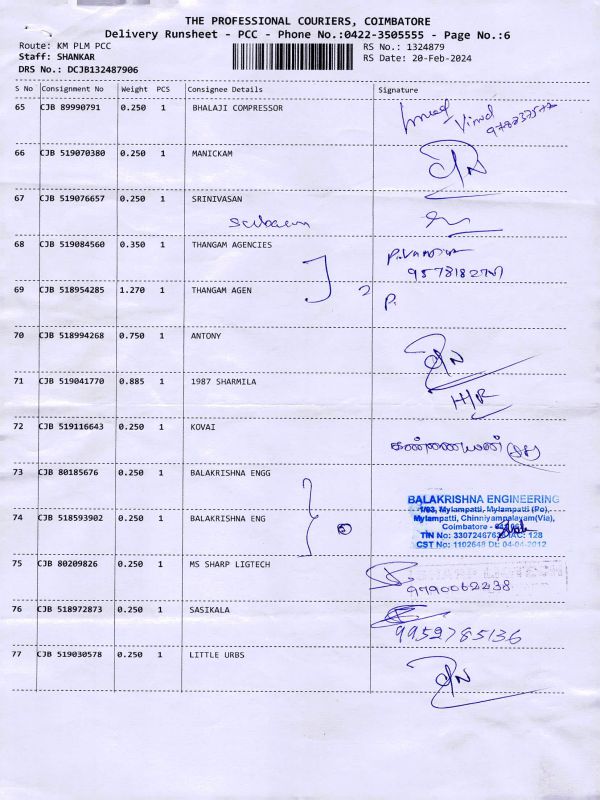 THE PROFESSIONAL COURIERS, COIMBATORE
Delivery Runsheet - PCC - Phone No.:0422-3505555 - Page No.:6
Route: KM PLM PCC
RS No.: 1324879
Staff: SHANKAR
RS Date: 20-Feb-2024
DRS No.: DCJB132487906
S No Consignment No Weight PCS Consignee Details Signature
65 CJB 89990791 0.250 1 BHALAJI COMPRESSOR
66 CJB 519070380 0.250 1 MANICKAM
67 CJB 519076657 0.250 1 SRINIVASAN
68 CJB 519084560 0.350 1 THANGAM AGENCIES
69 CJB 518954285 1.270 1 THANGAM AGEN
2 P.
70 CJB 518994268 0.750 1 ANTONY
71 CJB 519041770 0.885 1 1987 SHARMILA
H/R
72 CJB 519116643 0.250 1 KOVAI
73 CJB 80185676 0.250 1 BALAKRISHNA ENGG
BALAKRISHNA ENGINEERING
1/93, Mylampatti, Mylampatti (Po),
74 CJB 518593902 0.250 1 BALAKRISHNA ENG
Mylampatti, Chinniyampalayam(Via),
Coimbatore -
TIN No: : 128
CST No: 1102648 Dt: 04-04-2012
75 CJB 80209826 0.250 1 MS SHARP LIGTECH
9790062238
76 CJB 518972873 0.250 1 SASIKALA
9952785136
77 CJB 519030578 0.250 1 LITTLE URBS